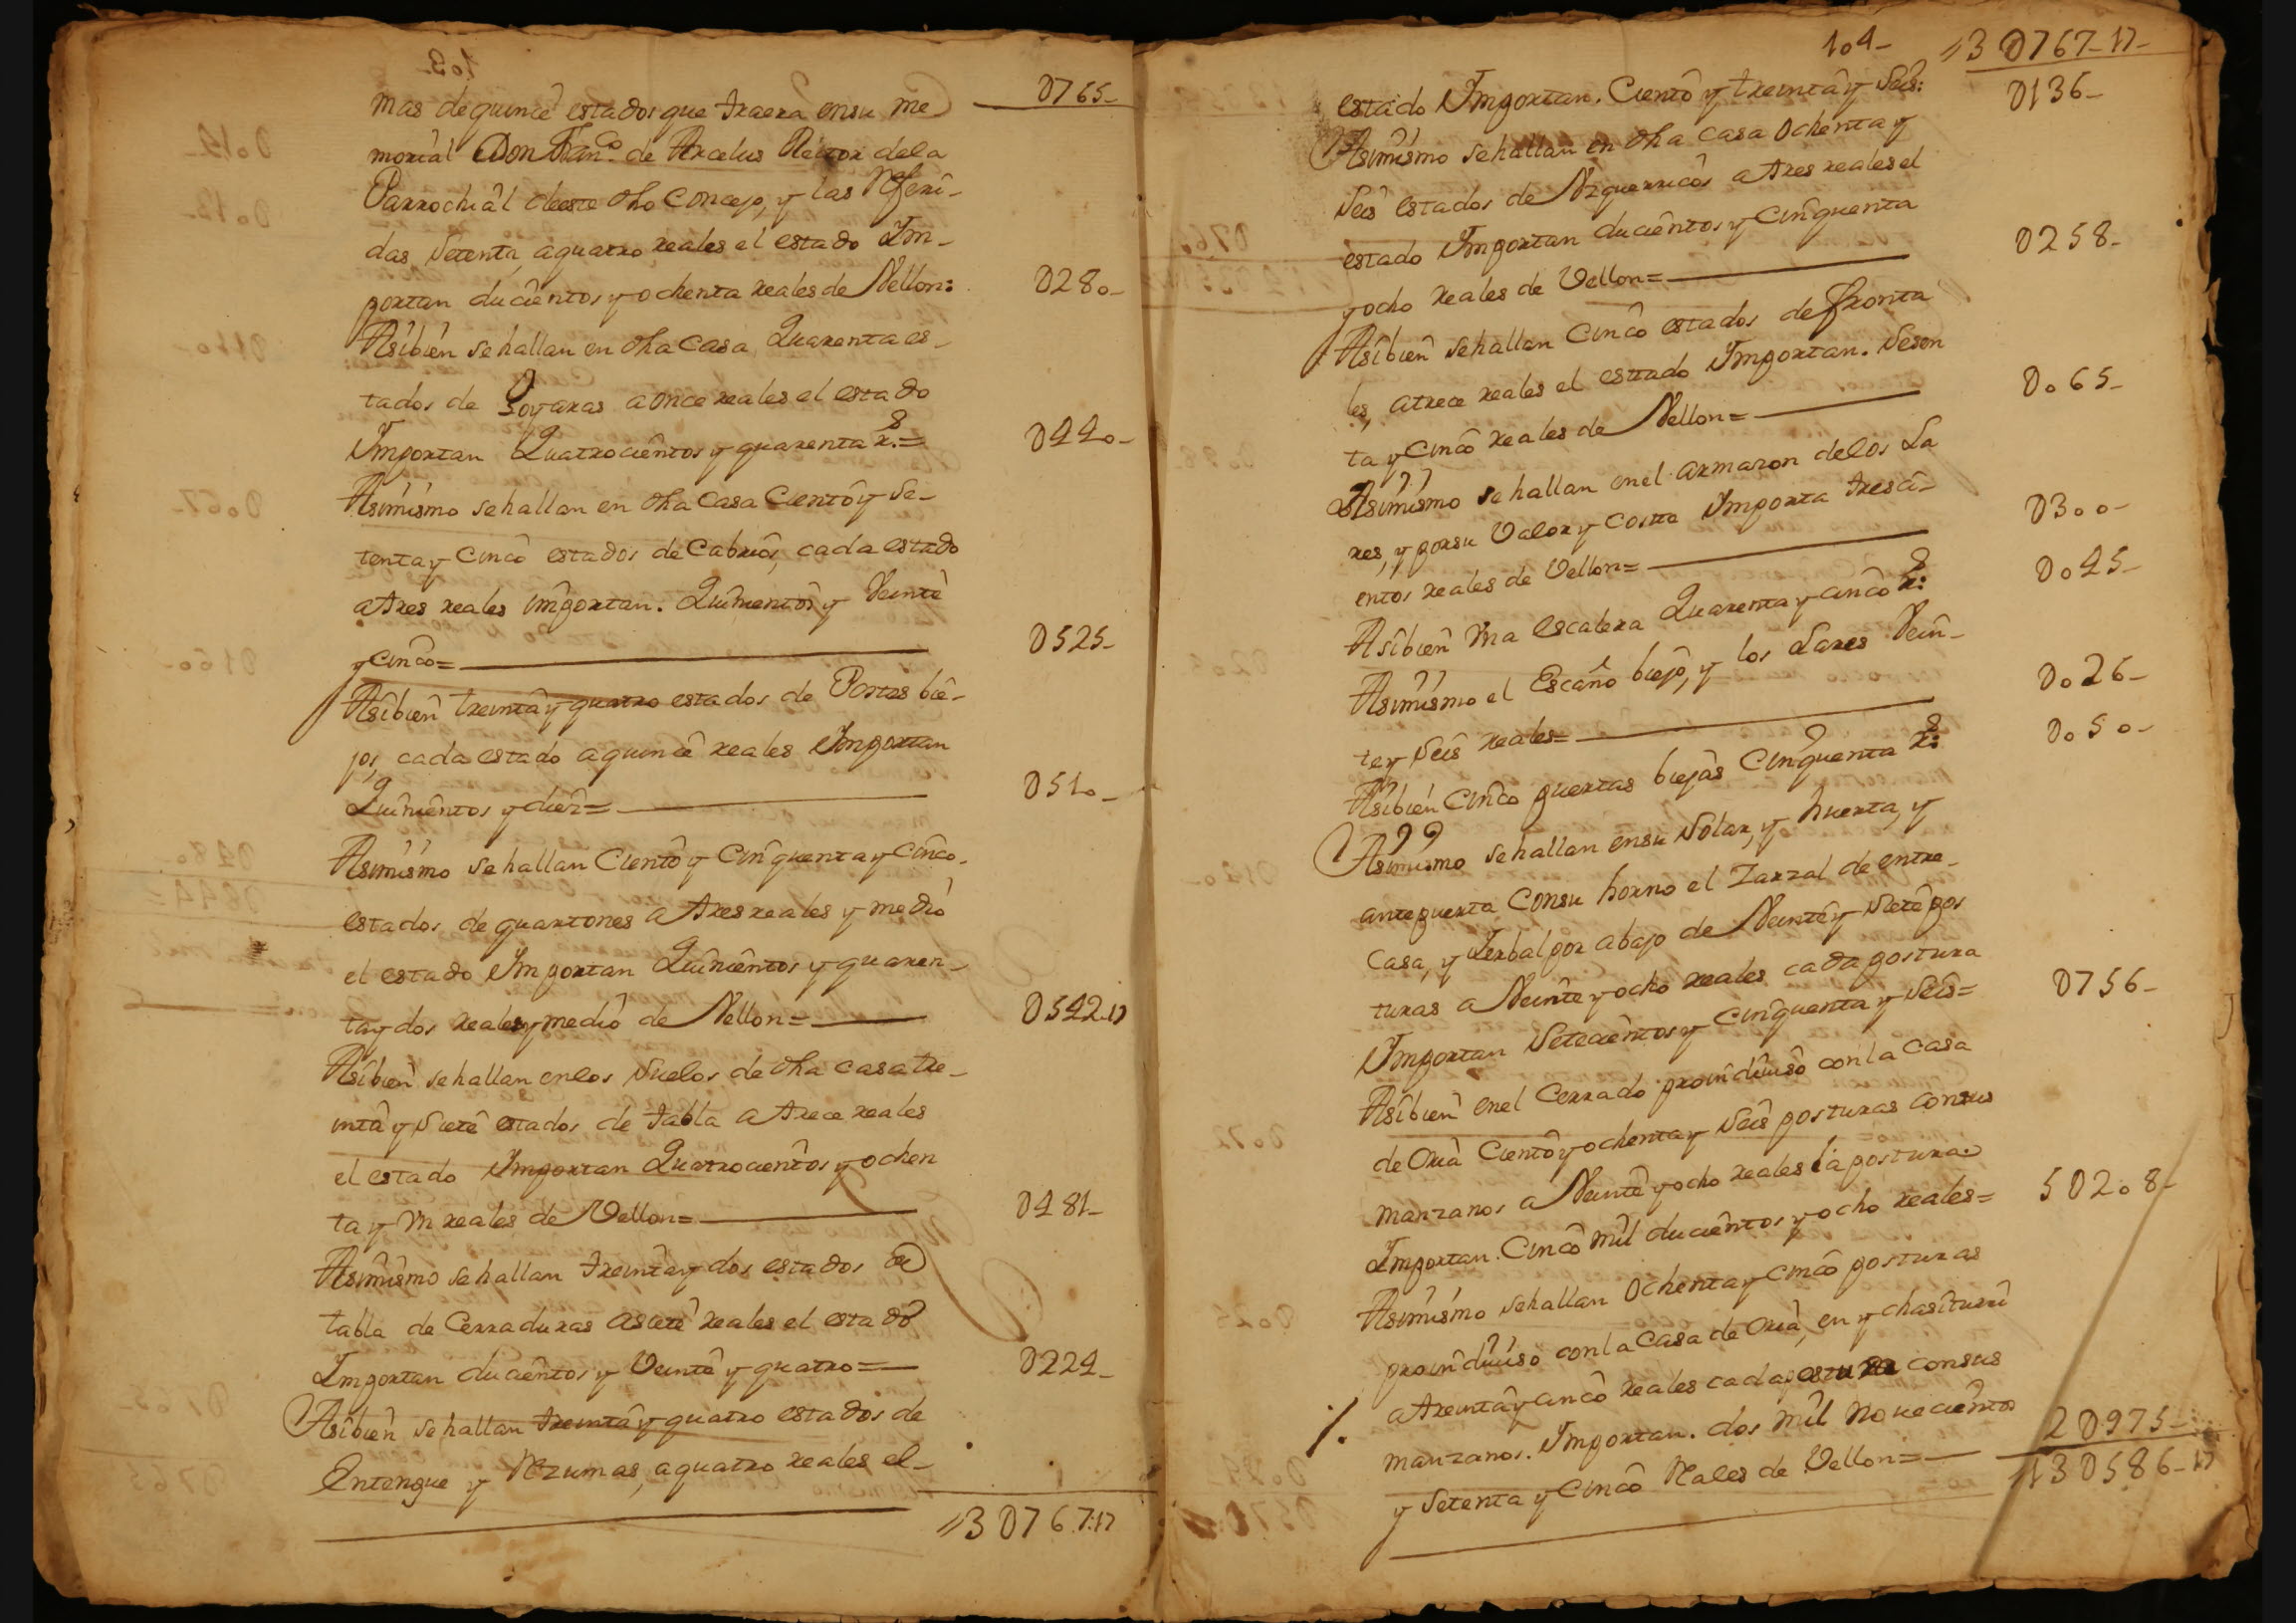 0765-
mas de quince estados que traera en su me
morial Don Fran.co de Arcelus Retor dela
Parrochial deeste dho Concejo, y las Referi-
das setenta, a quatro reales el estado Im-
portan ducientos y ochenta reales de Vellon: 0280-
Asibien se hallan en dha Casa Quarenta es-
tados de Soyaras a once reales el estado
Importan Quatrocientos y quarenta r.s= 0440-
Asimismo se hallan en dha Casa Ciento y Se-
tenta y Cinco estados de Cabrios, cada estado
a tres reales importan. Quinientos y Veinte
y cinco= 0525-
Asibien treinta y quatro estados de Postes bie-
jos, cada estado a quince reales Importan
Quinientos y diez= 0510-
Asimismo se hallan Ciento y Cinquenta y Cinco-
estados de quartones a tres reales y medio
el estado Importan Quinientos y quaren-
ta y dos reales y medio de Vellon= 0542-17
Asibien se hallan en los Suelos de dha casa tre-
inta y Siete estados de tabla a trece reales
el estado Importan Quatrocientos y ochen
ta y Vn reales de Vellon= 0481-
Asimismo se hallan treinta y dos estados de
tabla de Cerraduras a siete reales el estado
Importan ducientos y Veinte y quatro= 0224-
Asibien se hallan treinta y quatro estados de
Entengue y Vezumas, a quatro reales el-
//3 0767.17
104- //3 0767-17-
estado Importan. Ciento y treinta y Seis: 0136-
Asimismo se hallan en dha casa Ochenta y
Seis estados de Vizquerricos a tres reales el
estado Importan ducientos y Cinquenta
y ocho reales de Vellon= 0258-
Asibien se hallan Cinco estados de fronta
les, a trece reales el estado Importan. Sesen
ta y Cinco reales de Vellon= 0065-
Asimismo se hallan en el armazon de los La
res, y por su Valor y costa Importa tresci-
entos reales de Vellon= 0300-
Asibien Vna escalera Quarenta y cinco r.s: 0045-
Asimismo el Escaño biejo, y los Lares Vein-
te y Seis reales= 0026-
Asibien Cinco puertas biejas Cinquenta r.s: 0050-
Asimismo se hallan en su Solar, y huerta, y
antepuerta con su horno el Zarzal de entre-
casa, y Yerbal por abajo de Veinte y Siete pos
turas a Veinte y ocho reales cada postura
Importan Setecientos y Cinquenta y Seis= 0756-
Asibien en el Cerrado proindiuiso con la Casa
de Oria Ciento y ochenta y Seis posturas con sus
manzanos a Veinte y ocho reales la postura
Importan. Cinco mil ducientos y ocho reales= 50208-
Asimismo se hallan Ochenta y Cinco posturas
proindiuiso con la Casa de Oria, en ychasituru
a treinta y cinco reales cada postura con sus
manzanos. Importan. dos mil Novecientos
y Setenta y Cinco Reales de Vellon= 20975-
//130586-17